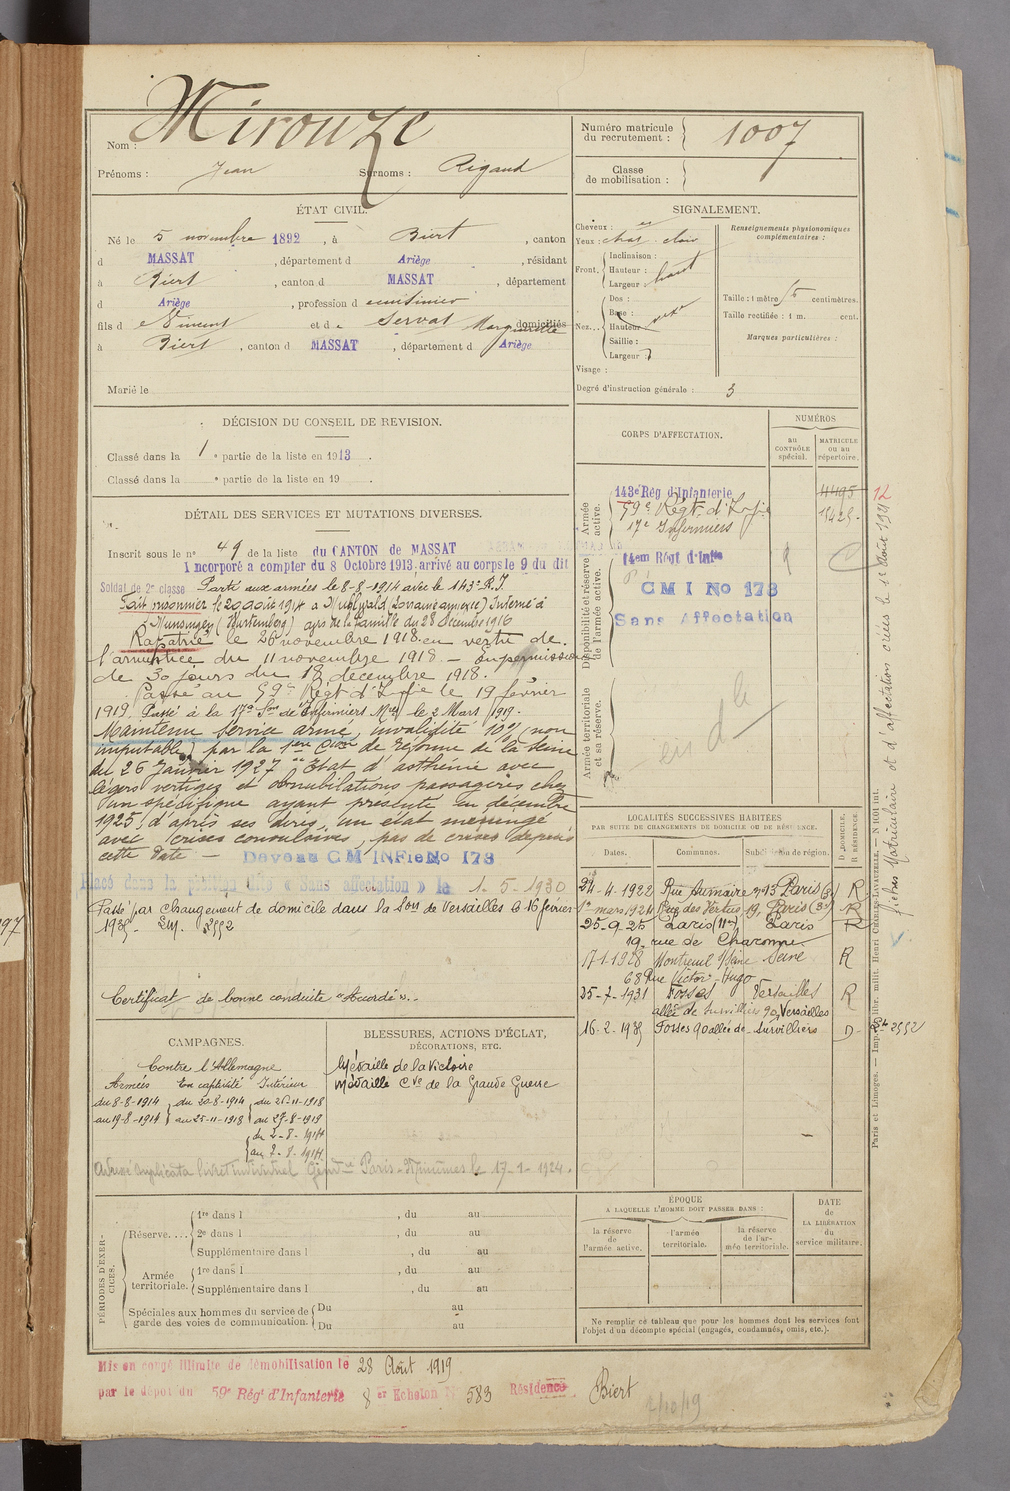 Nom : Mirouze
Prénoms : Jean Surnoms : Rigaud
Numéro matricule du recrutement : 1007
Classe de mobilisation :
ÉTAT CIVIL.
Né le 5 novembre 1892, à Biert, canton
d MASSAT, département d Ariège, résidant
à Biert, canton d MASSAT, département
d Ariège, profession d
fils de Vincent et de Servat Marguerite domiciliés
à Biert, canton d MASSAT, département d Ariège
Marié le
SIGNALEMENT.
Cheveux :
Yeux : chat. clair
Front. Inclinaison :
Hauteur : haut
Largeur :
Nez. Dos :
Base :
Hauteur
Saillie :
Largeur :
Visage :
Degré d'instruction générale : 3
Renseignements physionomiques complémentaires :
Taille : 1 mètre centimètres.
Taille rectifiée : 1 m. cent.
Marques particulières :
DÉCISION DU CONSEIL DE REVISION.
Classé dans la 1e partie de la liste en 1913.
Classé dans la e partie de la liste en 19 .
DÉTAIL DES SERVICES ET MUTATIONS DIVERSES.
Inscrit sous le no 49 de la liste du CANTON de MASSAT
Incorporé a compter du 8 Octobre 1913. arrivé au corps le 9 du dit
Soldat de 2e classe Parti aux armées le 8-8-1914 avec le 143e R.I.
Fait prisonnier le 20 août 1914 a Muhlwald (Loraine annexée) Interné à
Munsingen (Wurtemberg) avis de la famille du 28 décembre 1916
Rapatrié le 26 novembre 1918 en vertu de
l'armistice du 11 novembre 1918. — En permission
de 30 jours du 18 décembre 1918.
Passé au 59e Régt d'Infie le 19 février
1919. Passé à la 17e Son de Infirmiers Mres le 2 Mars 1919.
Maintenu Service armé, invalidité 10% (non
imputable) par la 1ere Cion de Réforme de la Seine
du 26 Janvier 1927 Etat d'asthénie avec
légers vertiges et obnubilations passagères chez
un spécifique ayant présenté en décembre
1925, d'après ses dires, un état méningé
avec crises convulsives, pas de crises depuis
cette date —
Devenu CM INFie No 178
Placé dans la position dite « Sans affectation » le 1-5-1930
Passé par changement de domicile dans la Son de Versailles le 16 février
1935. 2552
Certificat de bonne conduite "Accordé".
CORPS D'AFFECTATION.
NUMÉROS
au CONTRÔLE spécial.
MATRICULE ou au répertoire.
Armée active.
143e Rég d'Infanterie 4495
59e Régt. d'Infie
17e Infirmiers
Disponibilité et réserve de l'armée active.
14em Régt d'Infie
C M I No 178
Sans Affectation
Armée territoriale et sa réserve.
LOCALITÉS SUCCESSIVES HABITÉES
PAR SUITE DE CHANGEMENTS DE DOMICILE OU DE RÉSIDENCE.
Dates. Communes. Subdivision de région. D. DOMICILE, R. RÉSIDENCE.
24-4-1922 Rue Aumaire no 13 Paris (3) R
1er mars 1924 Rue des Vertus 19, Paris (3e) R
25-9-25 Paris (11e) Paris R
19, rue de Charonne.
17-1-1928 Montreuil s/Seine Seine R
68 Rue Victor-Hugo
25-7-1931 Fosses Versailles R
allée de Survilliers 90 Versailles
16-2-1935 Fosses 90 allée de Survilliers D
2552
CAMPAGNES.
Contre l'Allemagne
Armées En captivité Intérieur
du 8-8-1914 du 20-8-1914 du 26-11-1918
au 19-8-1914 au 25-11-1918 au 27-8-1919
du 2-8-1914
au 7-8-1914
BLESSURES, ACTIONS D'ÉCLAT,
DÉCORATIONS, ETC.
Médaille de la Victoire
Médaille Cve de la Grande Guerre
livret individuel Paris-Minimes le 17-1-1924.
PÉRIODES D'EXERCICES.
Réserve.... 1re dans l , du au
2e dans l , du au
Supplémentaire dans l , du au
Armée territoriale. 1re dans l , du au
Supplémentaire dans l , du au
Spéciales aux hommes du service de garde des voies de communication. Du au
Du au
ÉPOQUE
A LAQUELLE L'HOMME DOIT PASSER DANS :
la réserve de l'armée active.
l'armée territoriale.
la réserve de l'armée territoriale.
DATE de LA LIBÉRATION du service militaire.
Ne remplir ce tableau que pour les hommes dont les services font
l'objet d'un décompte spécial (engagés, condamnés, omis, etc.).
Mis en congé illimité de démobilisation le 28 Août 1919
par le dépôt du 59e Régt d'Infanterie 8 er Echelon No 583 Résidence Biert
7/10/19
Paris et Limoges. — Imp. et libr. milit. Henri CHARLES-LAVAUZELLE. — N 1601 int.
fiches Matriculaire et d'affectation créées le 1er Août 1941
12
97